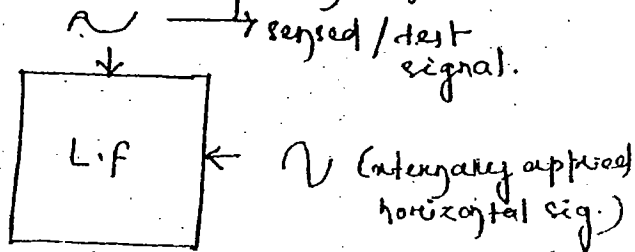 sensed / test
signal.
L.f
(externally applied
horizontal sig.)